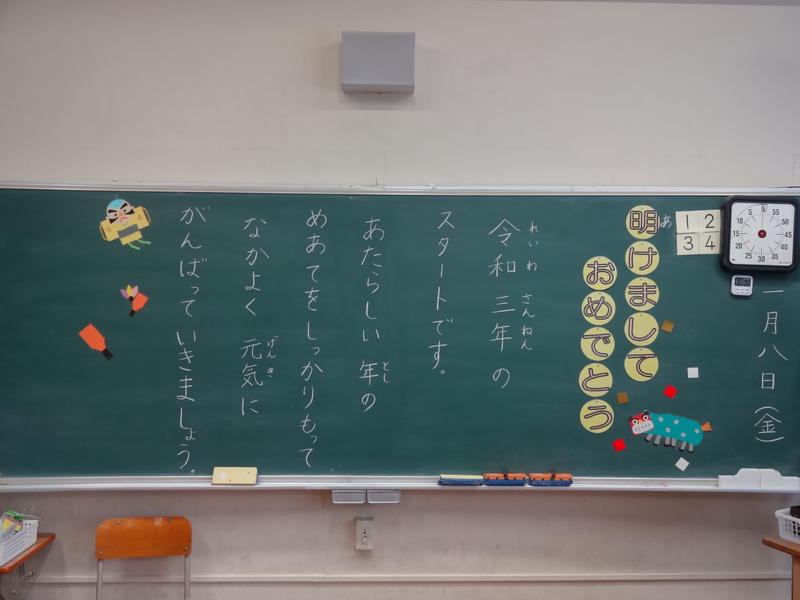 一月八日(金)
1 2
3 4
0 55 50 45 40 35 30 25 20 15 10 5
あ
明けまして
おめでとう
れいわ さんねん
令和 三年 の
スタートです。
あたらしい 年の
とし
めあてを しっかりもって
なかよく 元気に
げんき
がんばって いきましょう。